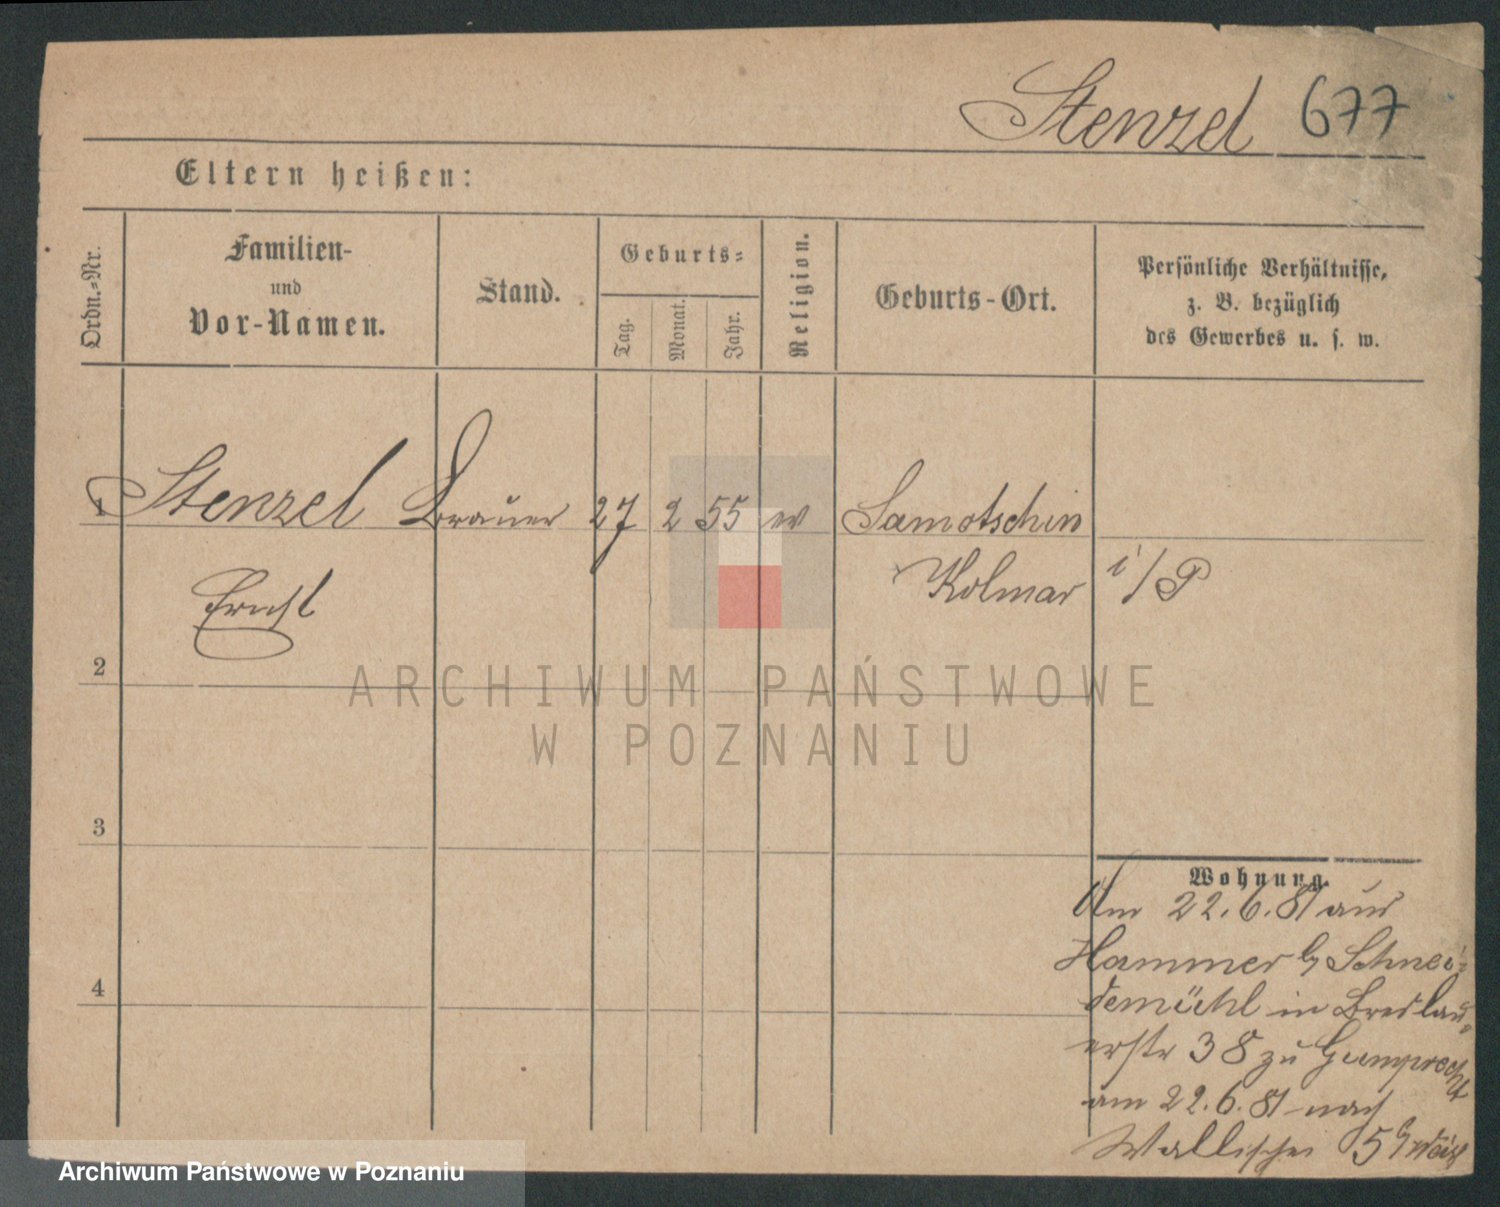 Stenzel 677
Eltern heißen:
Ordn.-Nr.
Familien-
und
Vor-Namen.
Stand.
Geburts-
Tag.
Monat.
Jahr.
Religion.
Geburts-Ort.
Persönliche Verhältnisse,
z. B. bezüglich
des Gewerbes u. s. w.
1 Stenzel Brauer 27 2 55 ev Samotschin
Kolmar i/P
Ernst
2
3
4
Wohnung.
Am 22.6.81 aus
Hammer b/ Schnei-
demühl in Breslau-
erstr 38 zu Gumprecht
am 22.6.81 nach
Wallischei 5 b/
ARCHIWUM PAŃSTWOWE
W POZNANIU
Archiwum Państwowe w Poznaniu